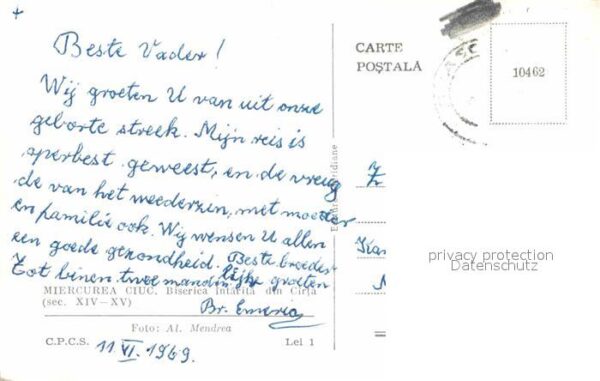 Beste Vader!
Wij groeten U van uit onze
geborte streek. Mijn reis is
sperbest geweest, en de vreug
de van het weederzin, met moeder
en familie ook. Wij wensen U allen
een goede gezondheid. Beste broeder
lijke groeten
Tot binen twee
Br.
11 VI. 1969.
MIERCUREA CIUC. Biserica întărită din Cîrța
(sec. XIV—XV)
Foto: Al. Mendrea
C.P.C.S. Lei 1
CARTE
POȘTALĂ
10462
privacy protection
Datenschutz